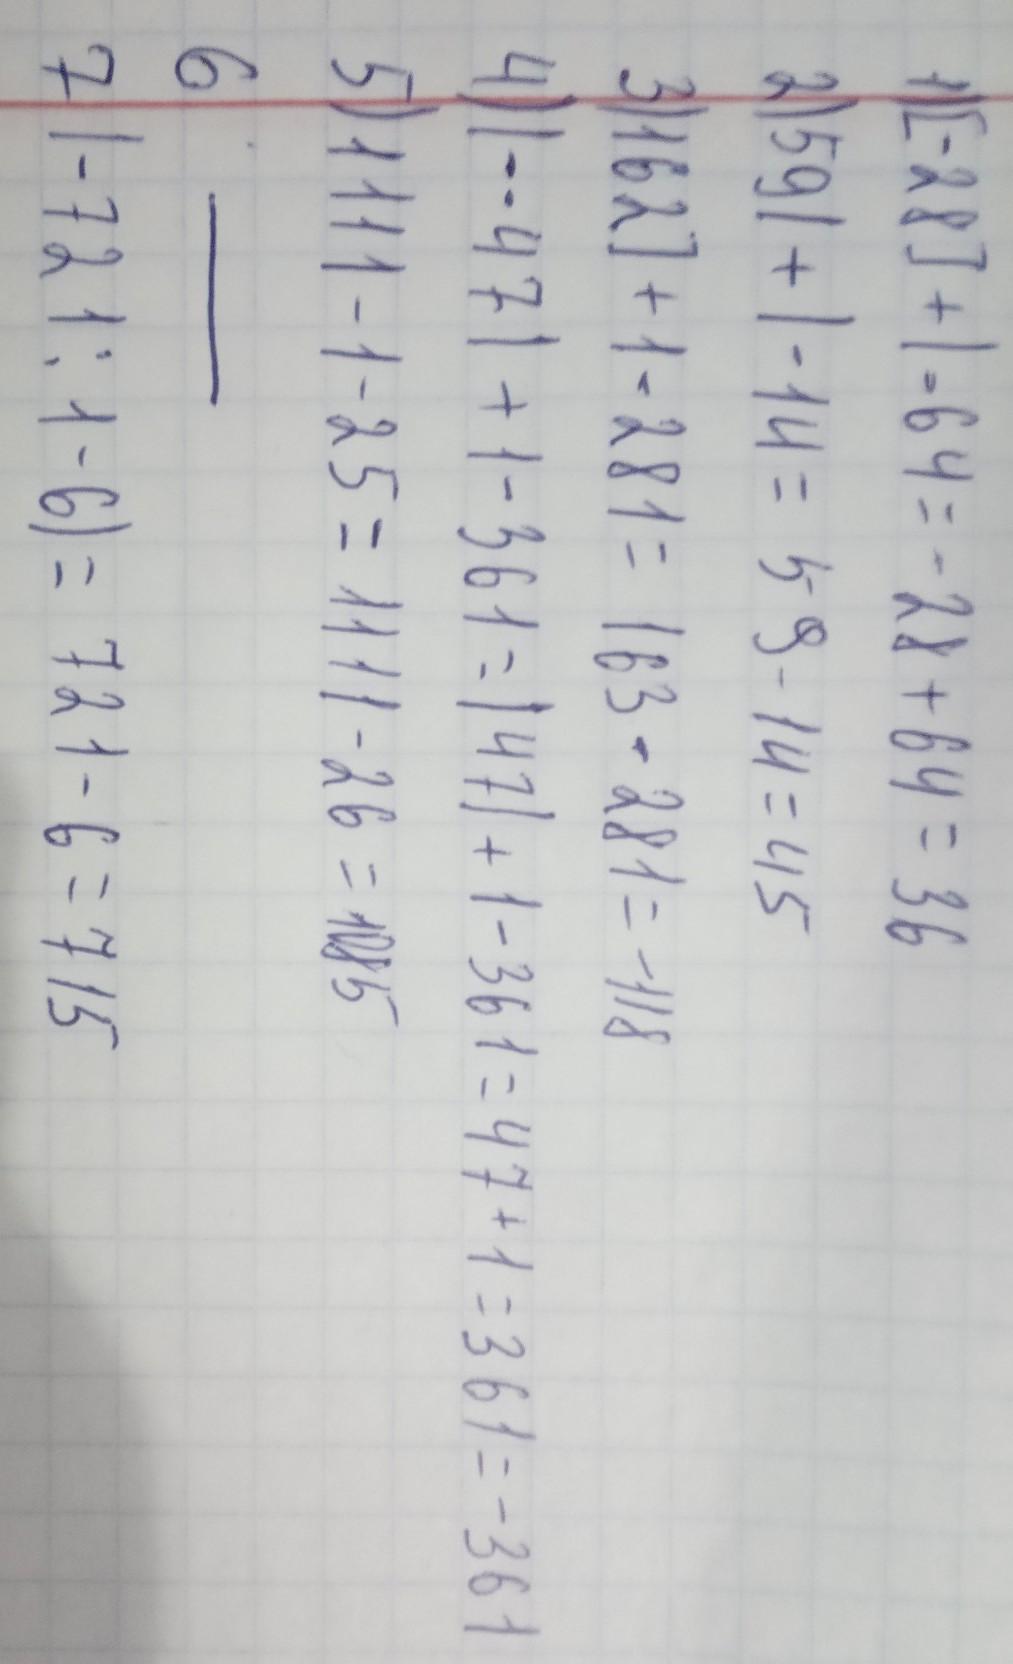 1)[-28]+|-64=-28+64=36
2)59|+|-14=59-14=45
3)162]+1-281=163-281=-118
4)|--47|+1-361=|47|+1-361=47+1=361=-361
5)1111-1-25=1111-26=1085
6 —
7 |-721:1-6)=721-6=715